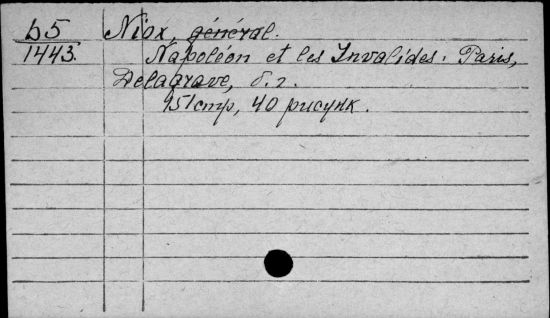 b5 Niox, général.
1443. Napoléon et les Invalides. Paris,
Delagrave, б.г.
951стр, 40 рисунк.